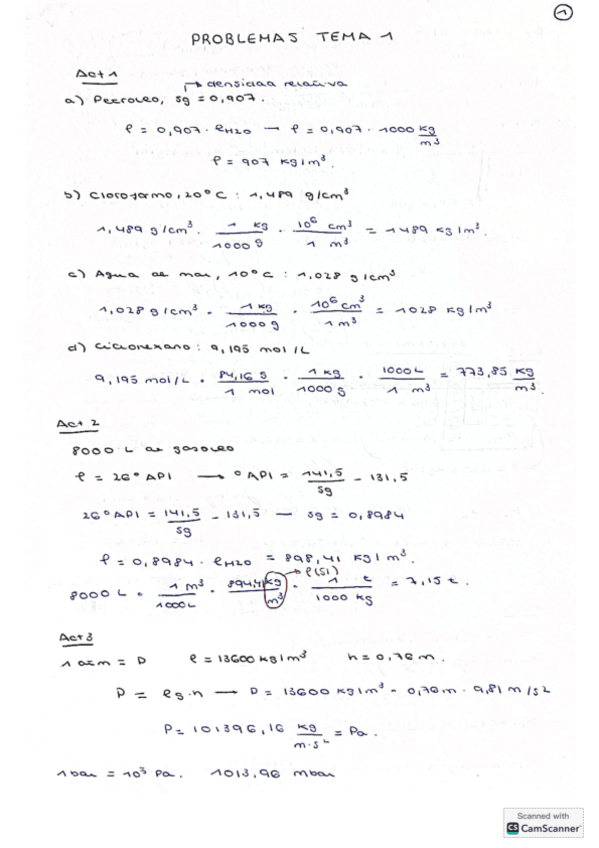 1
PROBLEMAS TEMA 1
Act 1
→ densidad relativa
a) Petroleo, sg = 0,907.
ρ = 0,907 · ρH2O → ρ = 0,907 · 1000 kg/m³
ρ = 907 kg/m³.
b) Cloroformo, 20°C : 1,489 g/cm³
1,489 g/cm³ · 1 kg/1000 g · 10⁶ cm³/1 m³ = 1489 kg/m³.
c) Agua de mar, 10°C : 1,028 g/cm³
1,028 g/cm³ · 1 kg/1000 g · 10⁶ cm³/1 m³ = 1028 kg/m³
d) Ciclohexano : 9,195 mol/L
9,195 mol/L · 84,16 g/1 mol · 1 kg/1000 g · 1000 L/1 m³ = 773,85 kg/m³.
Act 2
8000 L de gasoleo
ρ = 26° API → °API = 141,5/sg - 131,5
26° API = 141,5/sg - 131,5 — sg = 0,8984
ρ = 0,8984 · ρH2O = 898,41 kg/m³.
→ ρ(SI)
8000 L · 1 m³/1000 L · 894,4 kg/m³ · 1 t/1000 kg = 7,15 t.
Act 3
1 atm = P ρ = 13600 kg/m³ h = 0,76 m.
P = ρg·h → P = 13600 kg/m³ · 0,76 m · 9,81 m/s²
P = 101396,16 kg/m·s² = Pa.
1 bar = 10⁵ Pa. 1013,96 mbar
Scanned with
CS CamScanner